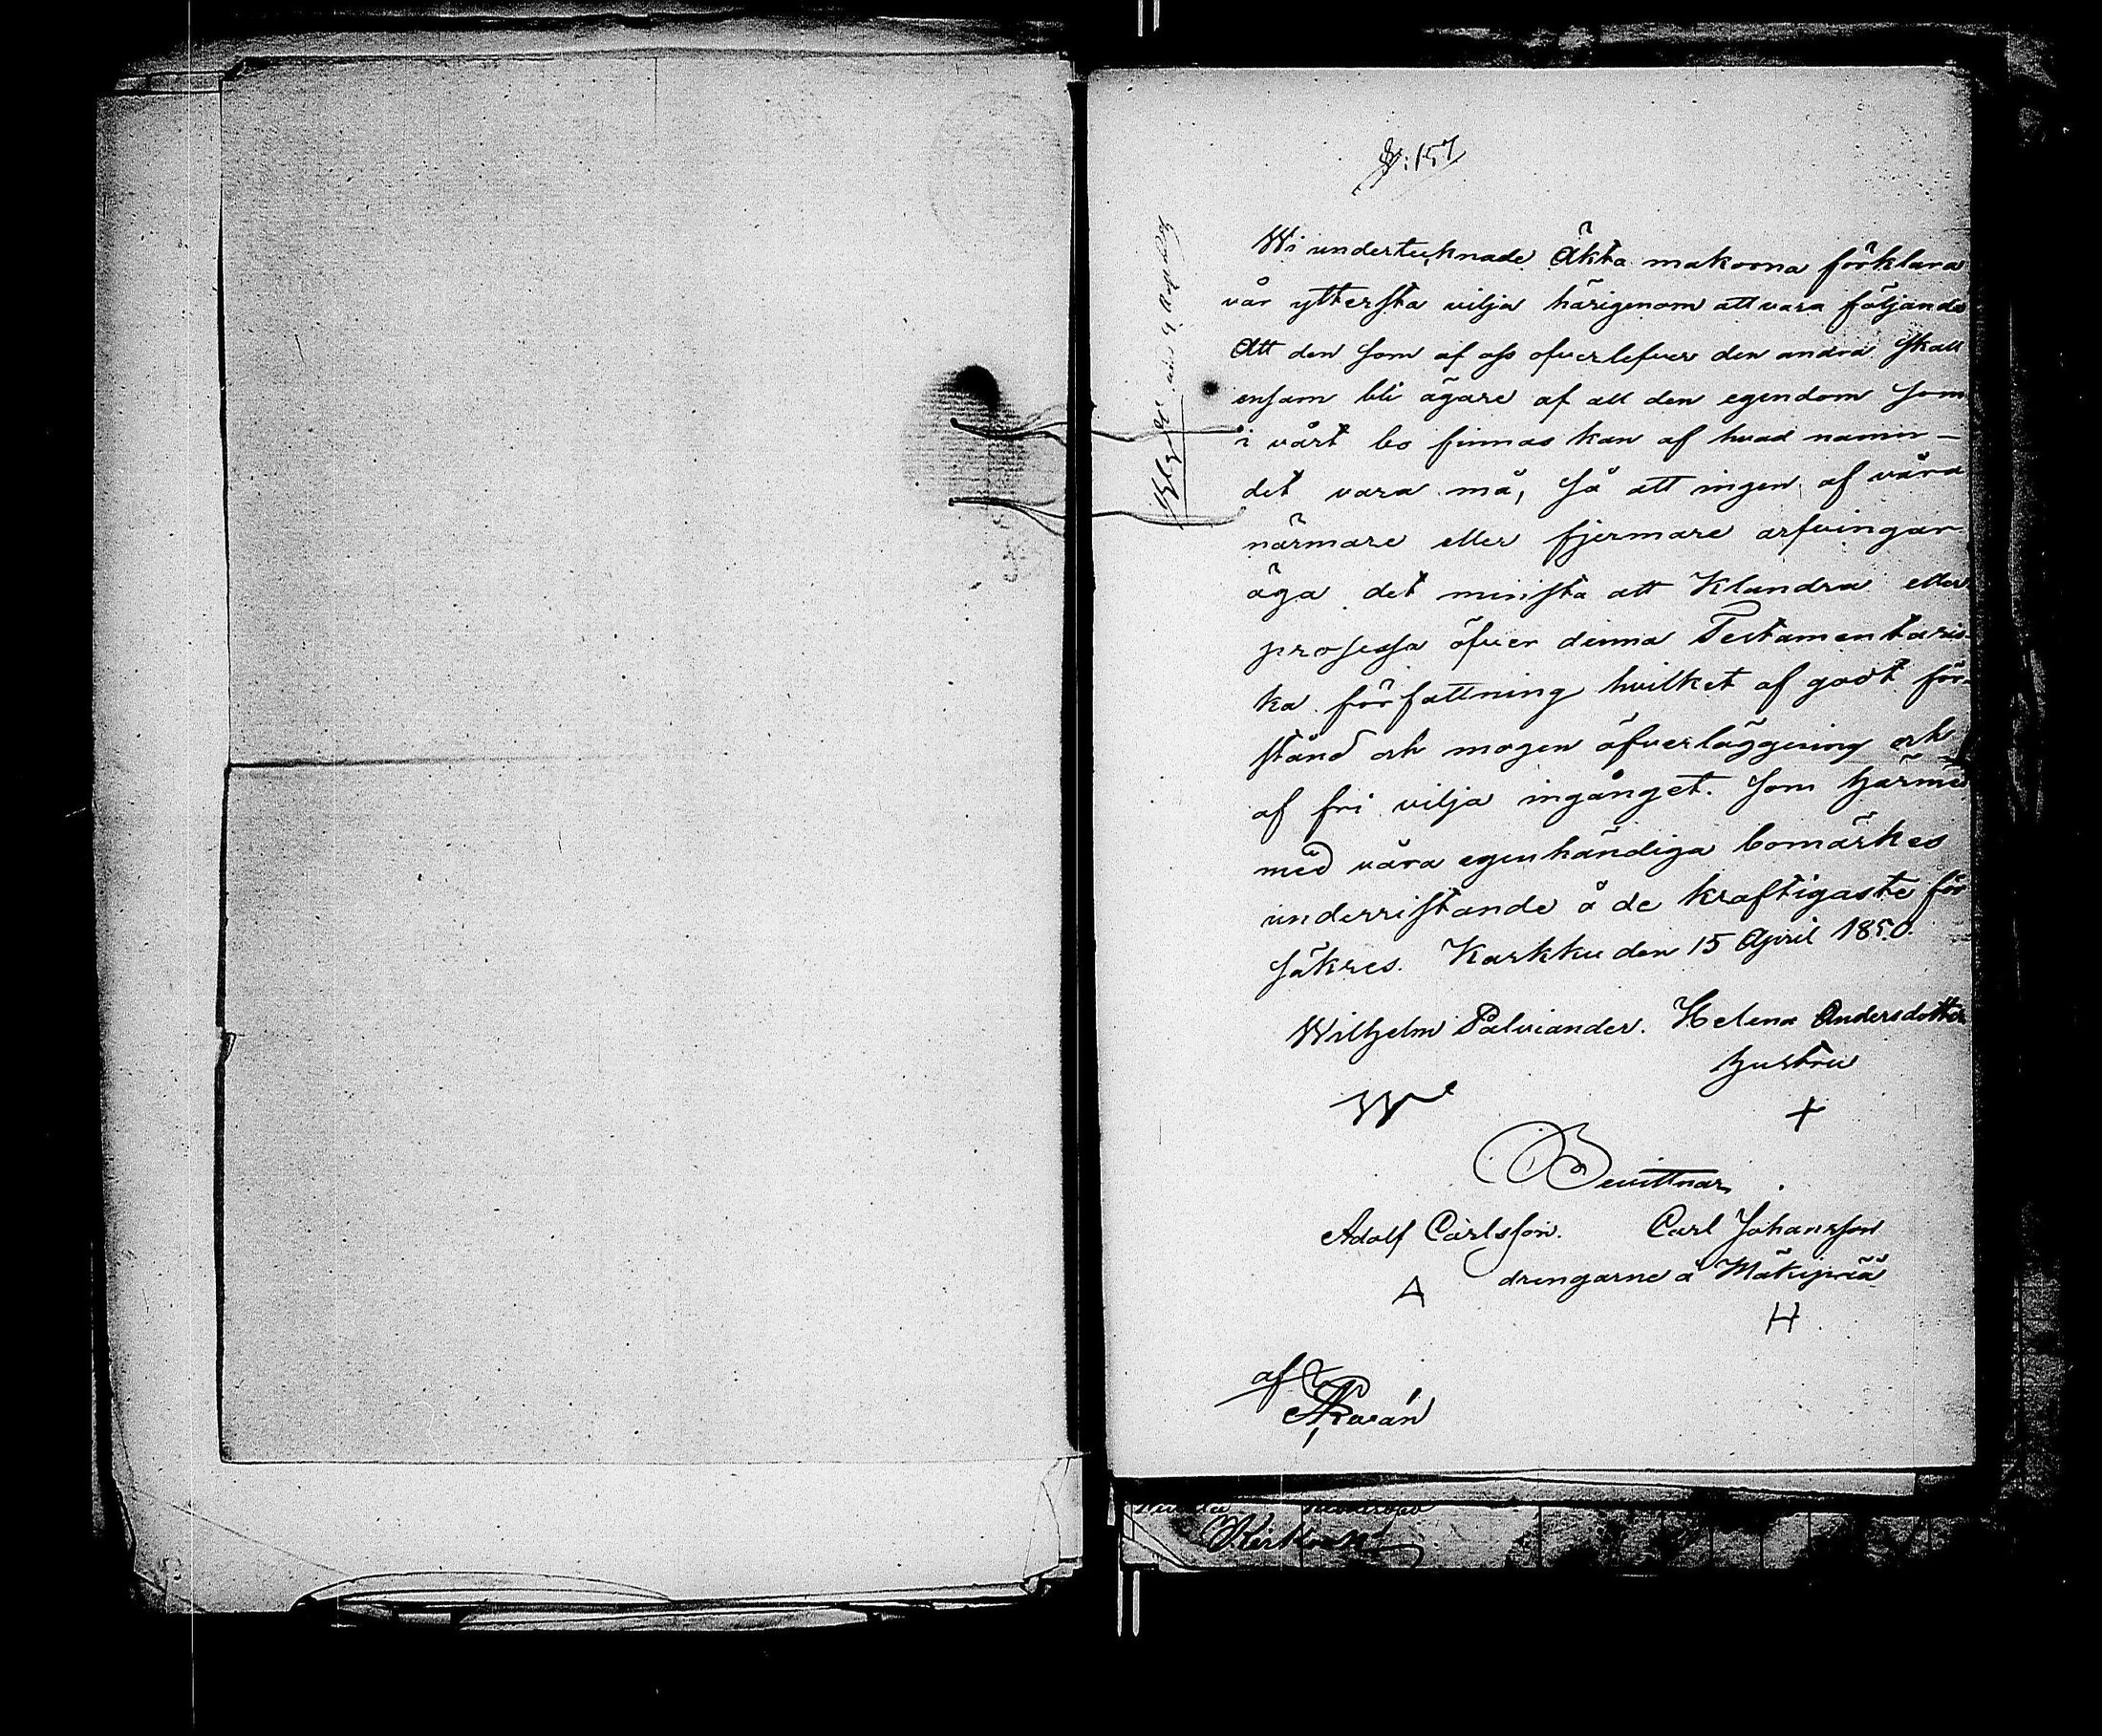 §:157
Wi undertecknade Äkta makorna förklara
vår yttersta vilja härigenom att vara följande
Att den som af oss ofverlefver den andra skall
ensam bli ägare af all den egendom som
i vårt bo finnas kan af hvad namn –
det vara må, så att ingen af våra
närmare eller fjermare arfvingar
äga det minsta att Klandra eller
prosessa öfver denna Testamentaris-
ka författning hvilket af godt för-
stånd och mogen öfverläggning och
af fri vilja ingånget. Som härmed
med våra egenhändiga bomärkes
underristande å de kraftigaste för
säkres. Karkku den 15 April 1850.
Wilhelm Palviander. Helena Andersdotter
hustru
W
+
Bevittnar
Adolf Carlsson. Carl Johansson
drengarne å Mäkipää
A
H
af